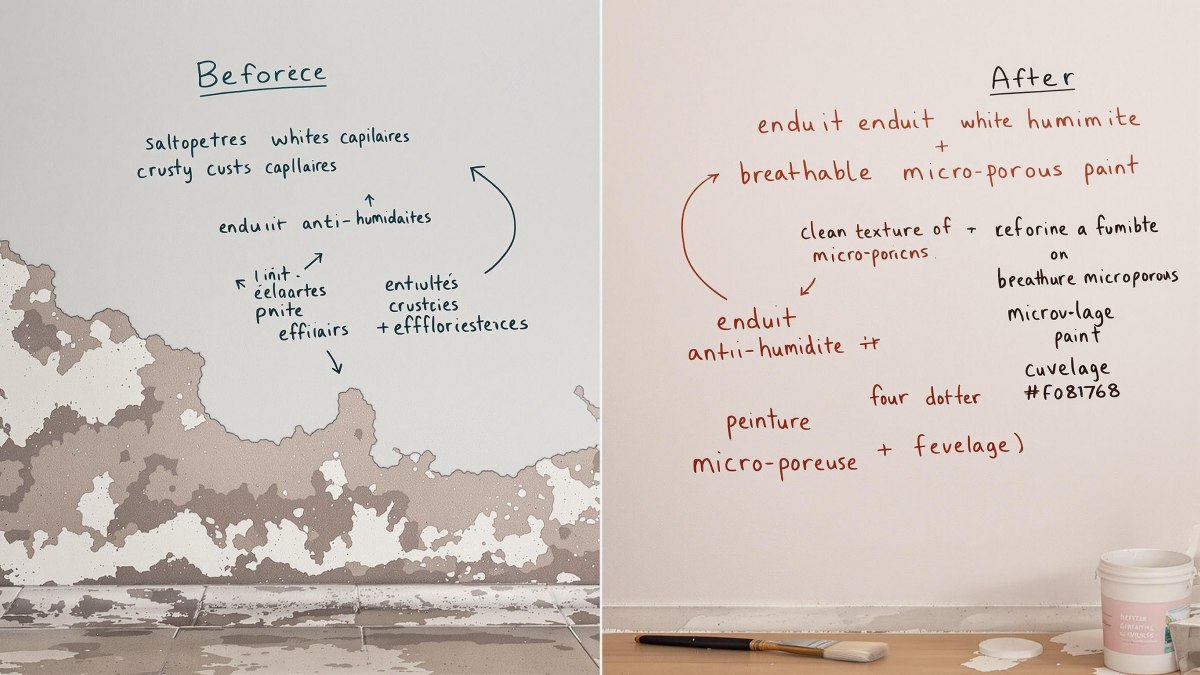 Beforèce
saltopetres whites capilaires
crusty custs capllaires
enduiit anti-humidaites
linit.
éelaartes
pnite
effilairs
entiultés
crustcies
+ efffloriesterces
After
enduit enduit white humimite
+
breathable micro-porous paint
clean texture of + reforine a fumibte
micro-poricns.
on
breathure microporous
microv-lage
paint
enduit
antii-humidite #
cuvelage
#F081768
four dotter
peinture
micro-poreuse + fevelage)